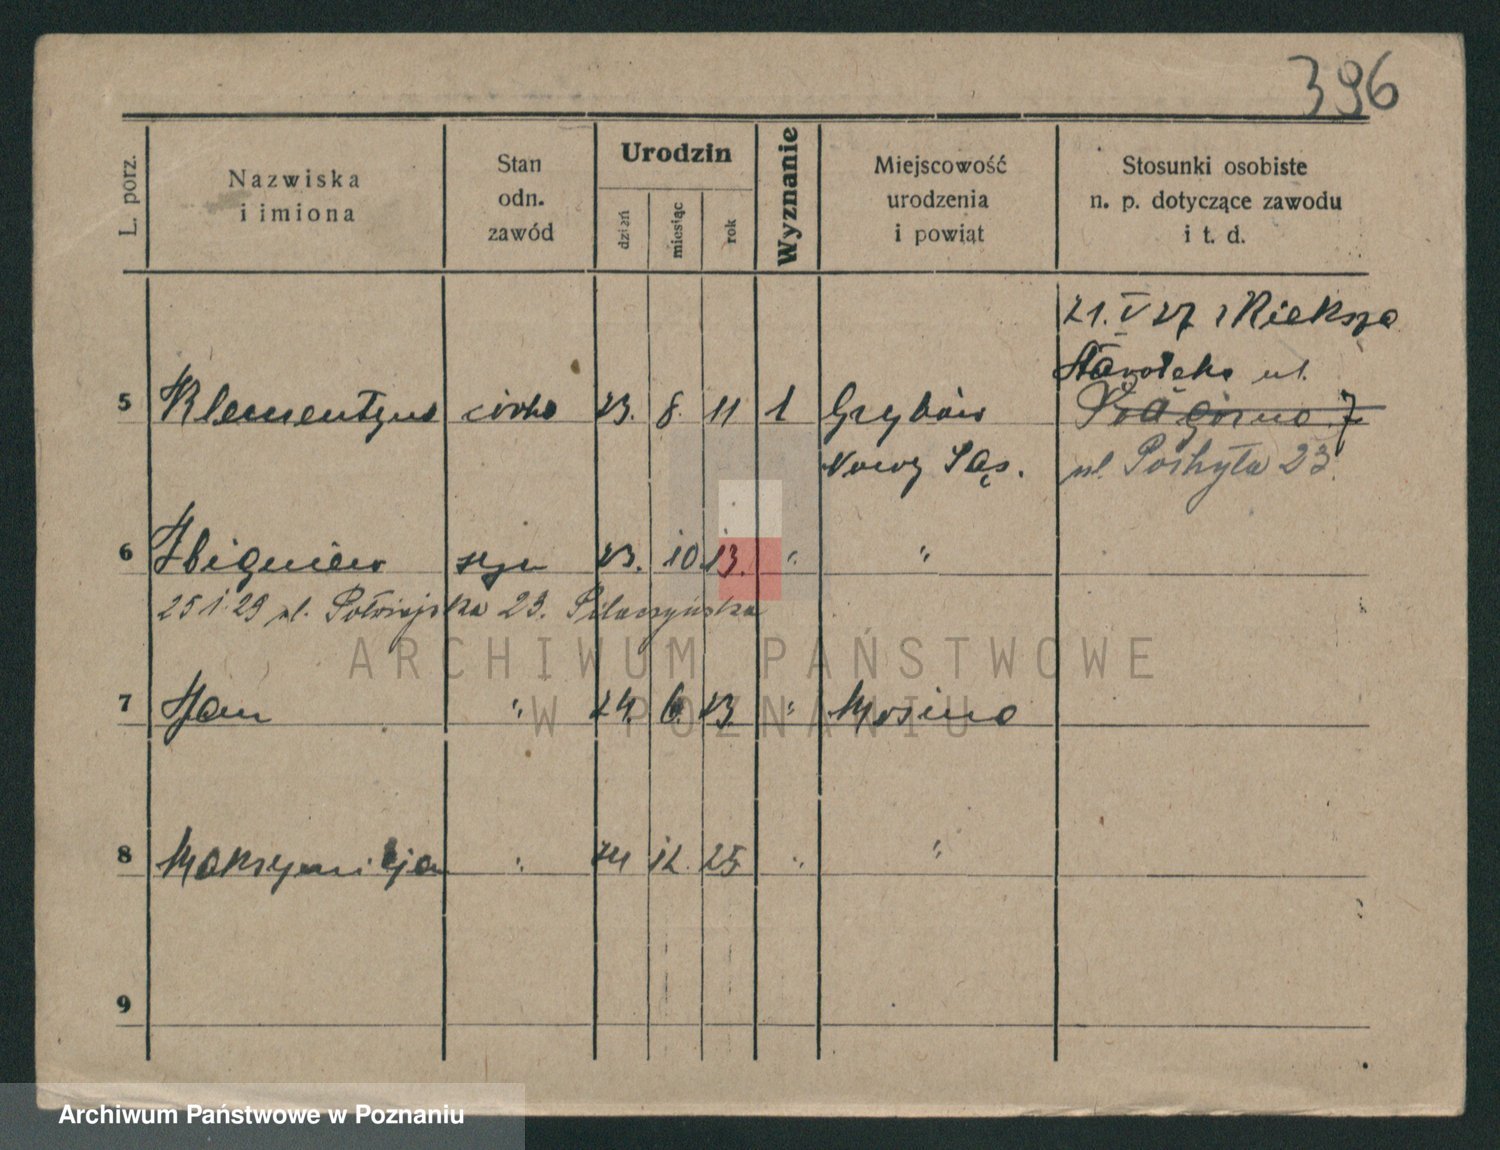 396
L. porz.
Nazwiska
i imiona
Stan
odn.
zawód
Urodzin
dzień
miesiąc
rok
Wyznanie
Miejscowość
urodzenia
i powiąt
Stosunki osobiste
n. p. dotyczące zawodu
i t. d.
21. V 27
Starołęka ul.
5 Klementyna córka 23. 8. 11 1 Grybów Podgórna 7
Nowy Sąs. ul. Pochyła 23.
6 Zbigniew syn 23. 10. 13. " "
25 1. 29 ul. Półwiejska 23.
ARCHIWUM PAŃSTWOWE
7 Jan " 24. 6. 23. " Mosina
W POZNANIU
8 Maksymiljan " 24 12. 25. " "
9
Archiwum Państwowe w Poznaniu